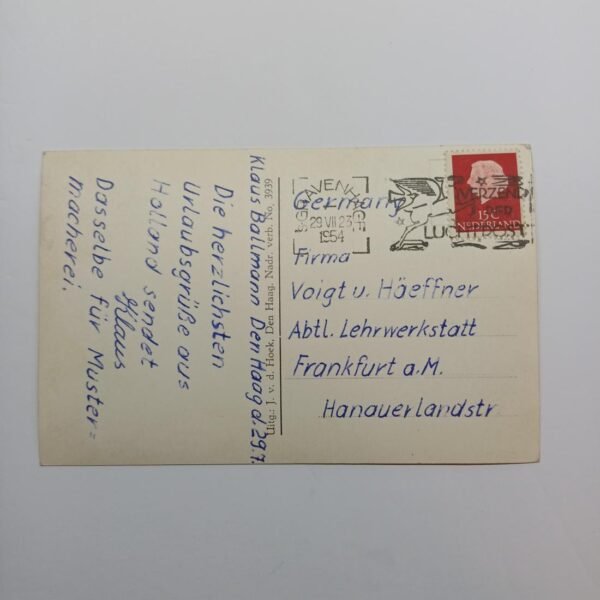 Klaus Ballmann Den Haag d. 29.7.
Die herzlichsten
Urlaubsgrüße aus
Holland sendet
Klaus
Dasselbe für Muster=
macherei.
Uitg.: J. v. d. Hoek, Den Haag. Nadr. verb. No. 3939
'S GRAVENHAGE
29 VII 23
1954
VERZEND
PER
LUCHTPOST
15 C
NEDERLAND
Germany
Firma
Voigt u. Häeffner
Abtl. Lehrwerkstatt
Frankfurt a. M.
Hanauerlandstr